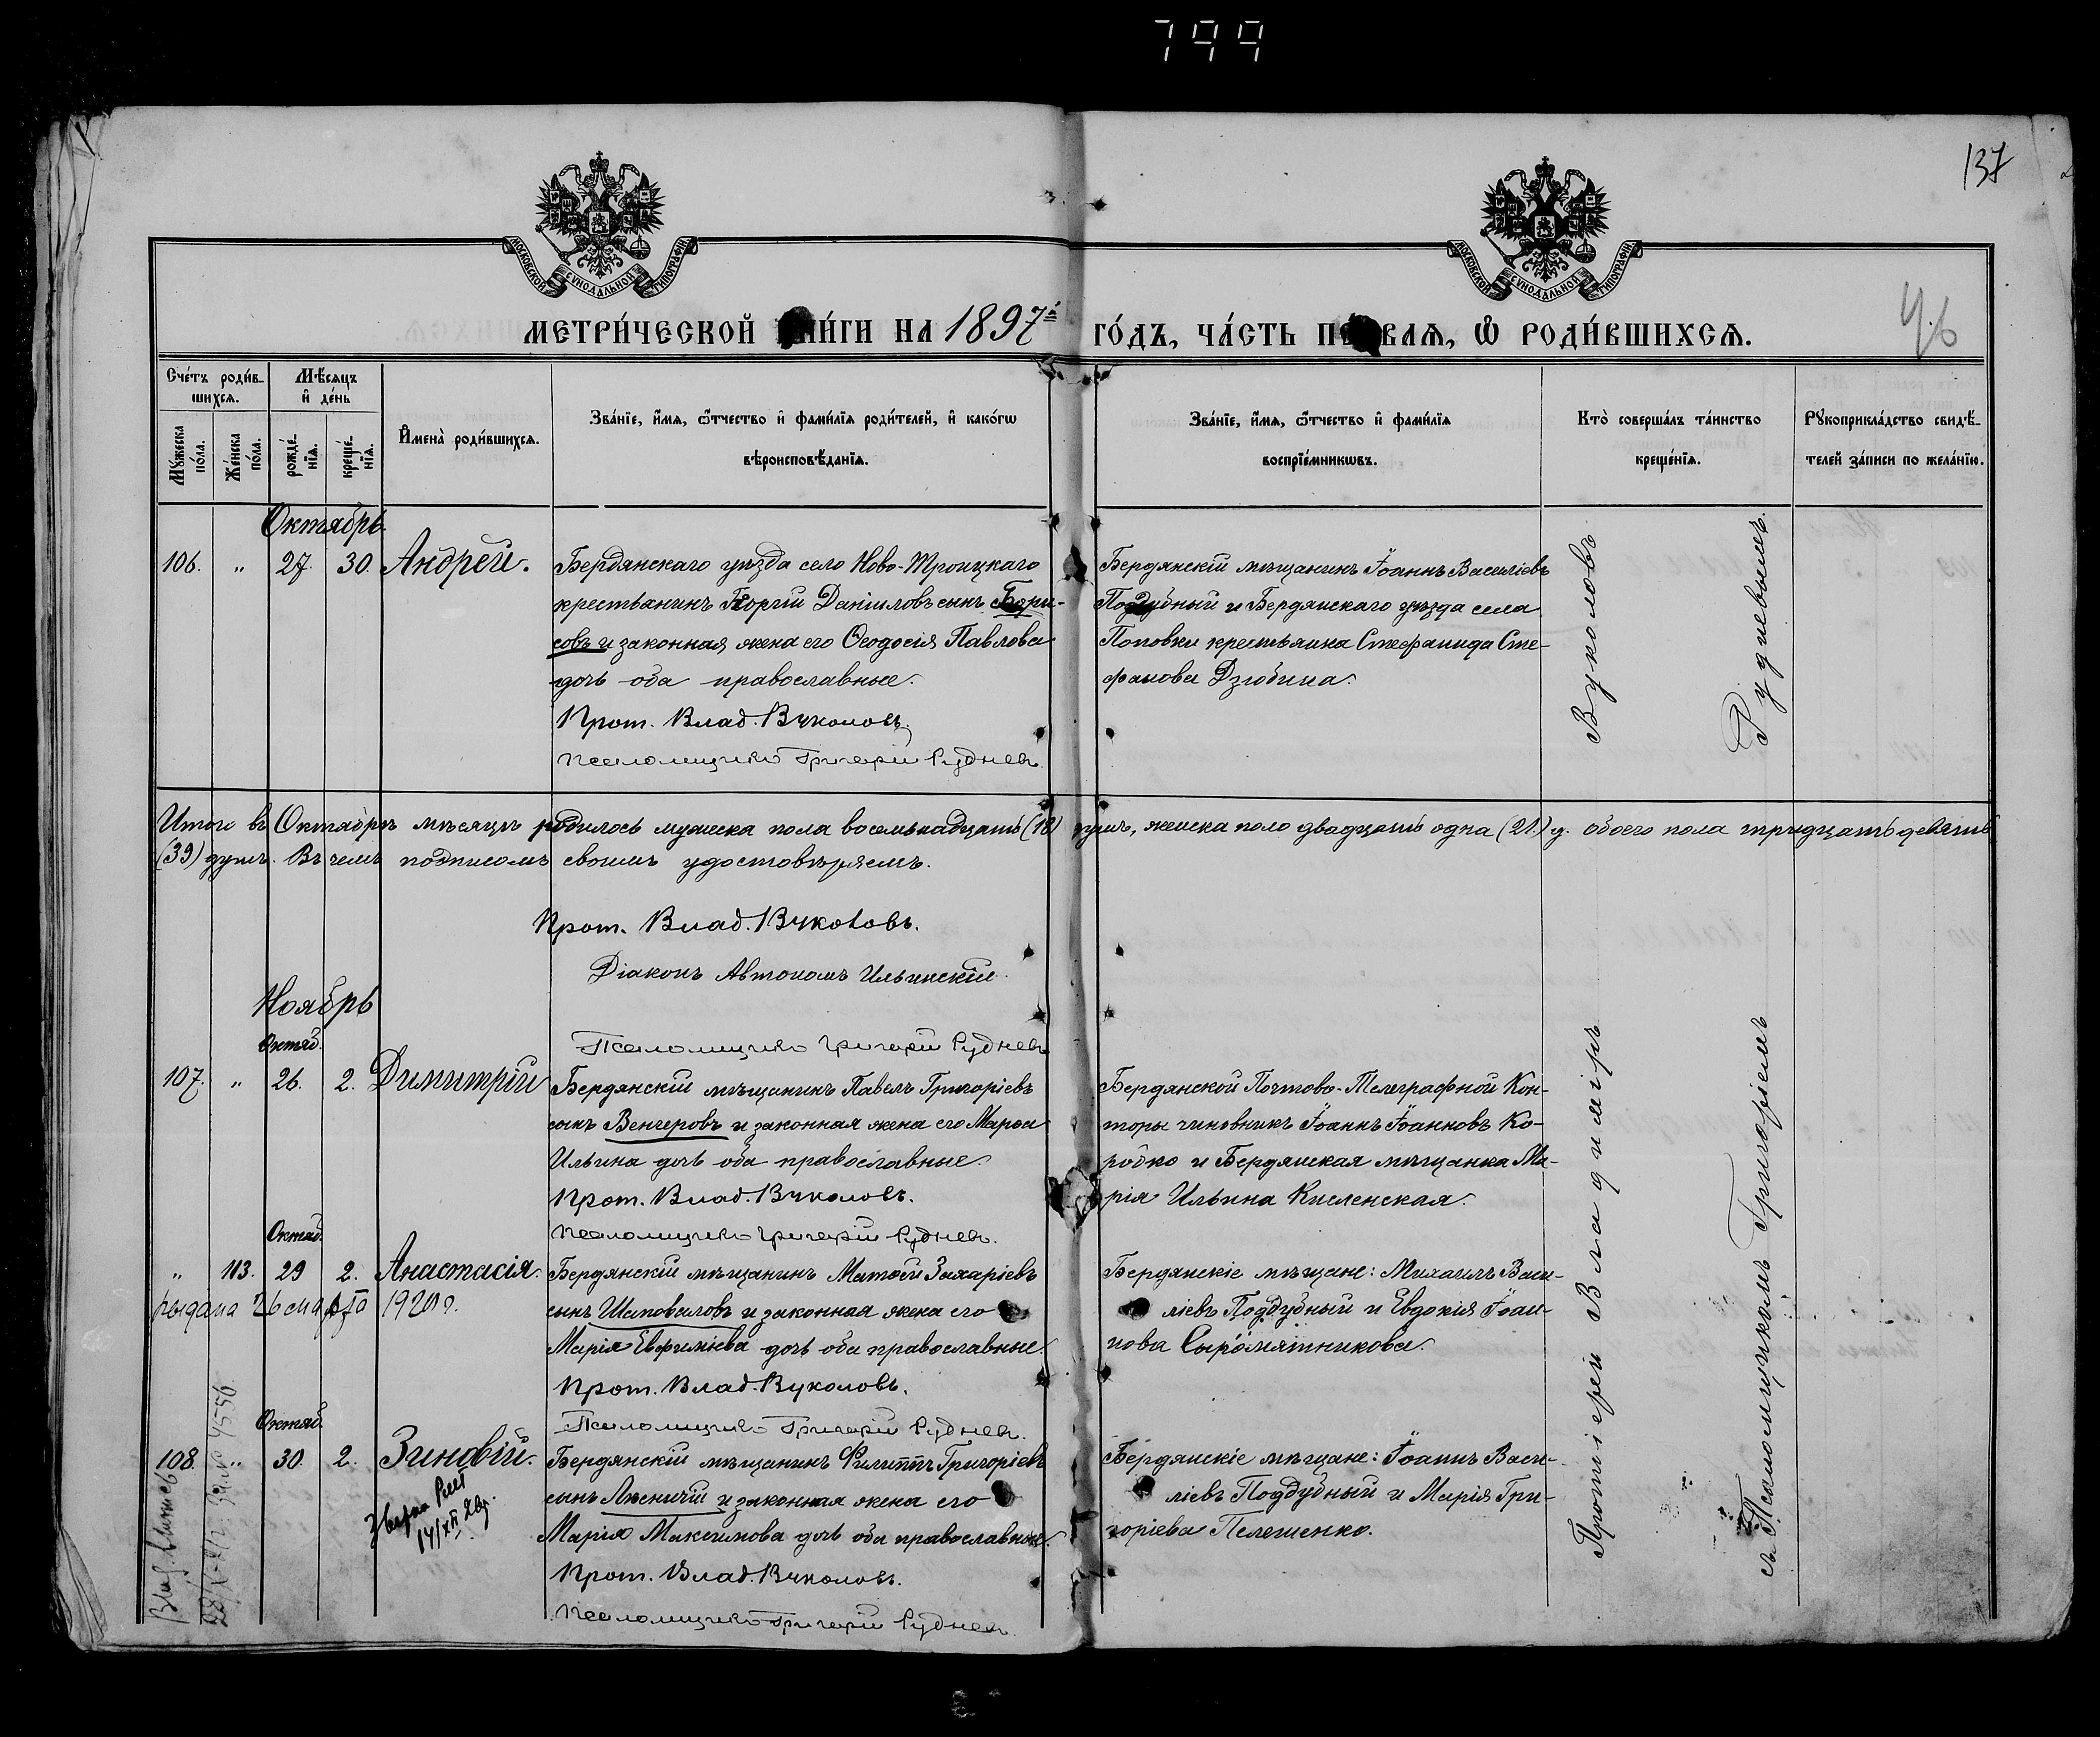 799
137
МОСКОВСКОЙ СѴНОДАЛЬНОЙ ТИПОГРАФІИ
МОСКОВСКОЙ СѴНОДАЛЬНОЙ ТИПОГРАФІИ
МЕТРИ́ЧЕСКОЙ КНИ́ГИ НА 1897й ГО́ДЪ, ЧА́СТЬ ПЕ́РВАѦ, Ѿ РОДИ́ВШИХСѦ.
Сче́тъ роди́в-
шихсѧ.
Мѣ́сѧцъ
и҆ де́нь
Мꙋ́жеска
по́ла.
Же́нска
по́ла.
рожде́-
нїѧ.
креще́-
нїѧ.
И҆мена̀ роди́вшихсѧ.
Зва́нїе, и҆́мѧ, ѻ҆́тчество и҆ фами́лїѧ роди́телей, и҆ како́гѡ
вѣроисповѣ́данїѧ.
Зва́нїе, и҆́мѧ, ѻ҆́тчество и҆ фами́лїѧ
воспрїе́мникѡвъ.
Кто̀ соверша́лъ та́инство
креще́нїѧ.
Рꙋкоприкла́дство свидѣ́-
телей за́писи по жела́нїю.
Октябрь
106. „ 27. 30. Андрей.
Бердянскаго уѣзда село Ново-Троицкаго
крестьянинъ Георгій Даніиловъ сынъ Бори-
совъ и законная жена его Ѳеодосія Павлова
дочь оба православные.
Прот. Влад. Вуколовъ.
Псаломщикъ Григорій Рудневъ.
Бердянскій мѣщанинъ Іоаннъ Василіевъ
Поддубный и Бердянскаго уѣзда села
Поповки крестьянка Стефанида Сте-
фанова Дзюбина.
Итого въ Октябрѣ мѣсяцѣ родилось мужеска пола восемьнадцать (18) душъ, женска поло двадцать одна (21.) д. обоего пола тридцать девять
(39) душъ. Въ чемъ подписомъ своимъ удостовѣряемъ.
Прот. Влад. Вуколовъ.
Діаконъ Автономъ Ильинскій.
Псаломщикъ Григорій Рудневъ
Ноябрь
Октяб.
107. „ 26. 2. Димитрій
Бердянскій мѣщанинъ Павелъ Григоріевъ
сынъ Венгеровъ и законная жена его Марѳа
Ильина дочь оба православные.
Прот. Влад. Вуколовъ.
Псаломщикъ Григорій Рудневъ.
Бердянской Почтово-Телеграфной Кон-
торы чиновникъ Іоаннъ Іоанновъ Ко-
робко и Бердянская мѣщанка Ма-
рія Ильина Кисленская.
Октяб.
„ 113. 29 2. Анастасія.
26 марта 1920 г.
Бердянскій мѣщанинъ Матѳей Захаріевъ
сынъ Шаповаловъ и законная жена его
Марія Евфиміева дочь оба православные.
Прот. Влад. Вуколовъ.
Псаломщикъ Григорій Рудневъ.
Бердянскіе мѣщане: Михаилъ Васи-
ліевъ Поддубный и Евдокія Іоан-
нова Сыромятникова.
Октяб.
108. „ 30. 2. Зиновій.
Бердянскій мѣщанинъ Филиппъ Григоріевъ
сынъ и законная жена его
Марія Максимова дочь оба православные.
Прот. Влад. Вуколовъ.
Псаломщикъ Григорій Рудневъ.
Бердянскіе мѣщане: Іоаннъ Васи-
ліевъ Поддубный и Марія Гри-
горіева Пелешенко.
Протоіерей Владиміръ Вуколовъ
съ Псаломщикомъ Григоріемъ Рудневымъ.